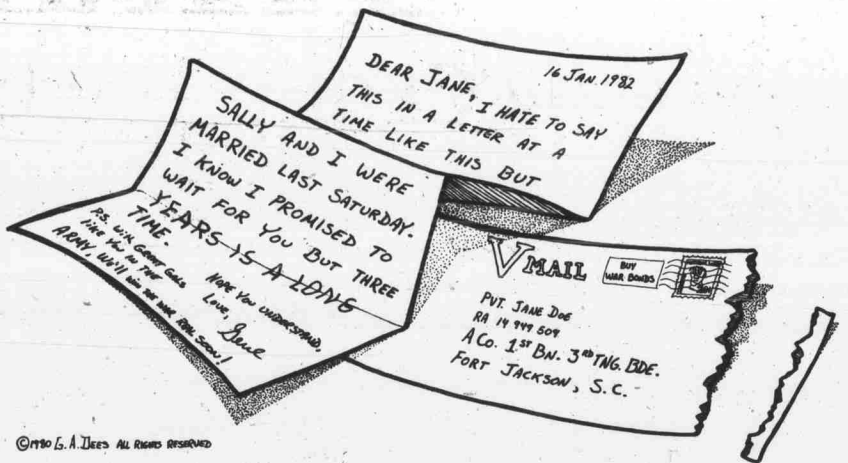 16 JAN. 1982
DEAR JANE, I HATE TO SAY
THIS IN A LETTER AT A
TIME LIKE THIS BUT
SALLY AND I WERE
MARRIED LAST SATURDAY.
I KNOW I PROMISED TO
WAIT FOR YOU BUT THREE
YEARS IS A LONG
TIME.
HOPE YOU UNDERSTAND,
LOVE,
Gene
P.S. WITH GREAT GALS
LIKE YOU IN THE
ARMY, WE'LL WIN THE WAR REAL SOON!
V MAIL
BUY
WAR BONDS
PVT. JANE DOE
RA 14 949 504
A CO. 1ST BN. 3RD TNG. BDE.
FORT JACKSON, S.C.
©1980 G. A. DEES ALL RIGHTS RESERVED